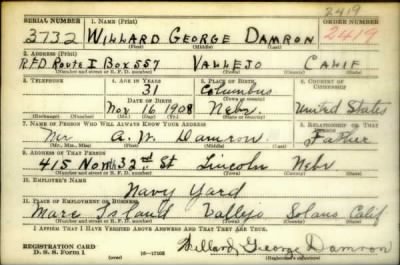 2419
SERIAL NUMBER 1. NAME (Print) ORDER NUMBER
3732 WILLARD GEORGE DAMRON 2419
(First) (Middle) (Last)
2. ADDRESS (Print)
RFD Route I Box 557 VALLEJO CALIF
(Number and street or R. F. D. number) (Town) (County) (State)
3. TELEPHONE 4. AGE IN YEARS 5. PLACE OF BIRTH 6. COUNTRY OF CITIZENSHIP
31 Columbus
DATE OF BIRTH (Town or county)
Nov 16 1908 Nebr United States
(Exchange) (Number) (Mo.) (Day) (Yr.) (State or country)
7. NAME OF PERSON WHO WILL ALWAYS KNOW YOUR ADDRESS 8. RELATIONSHIP OF THAT PERSON
Mr A. W. Damron Father
(Mr., Mrs., Miss) (First) (Middle) (Last)
9. ADDRESS OF THAT PERSON
415 North 32nd St Lincoln Nebr
(Number and street or R. F. D. number) (Town) (County) (State)
10. EMPLOYER'S NAME
Navy Yard
11. PLACE OF EMPLOYMENT OR BUSINESS
Mare Island Vallejo Solano Calif
(Number and street or R. F. D. number) (Town) (County) (State)
I AFFIRM THAT I HAVE VERIFIED ABOVE ANSWERS AND THAT THEY ARE TRUE.
REGISTRATION CARD
D. S. S. Form 1 (over) Willard George Damron
(Registrant's signature)